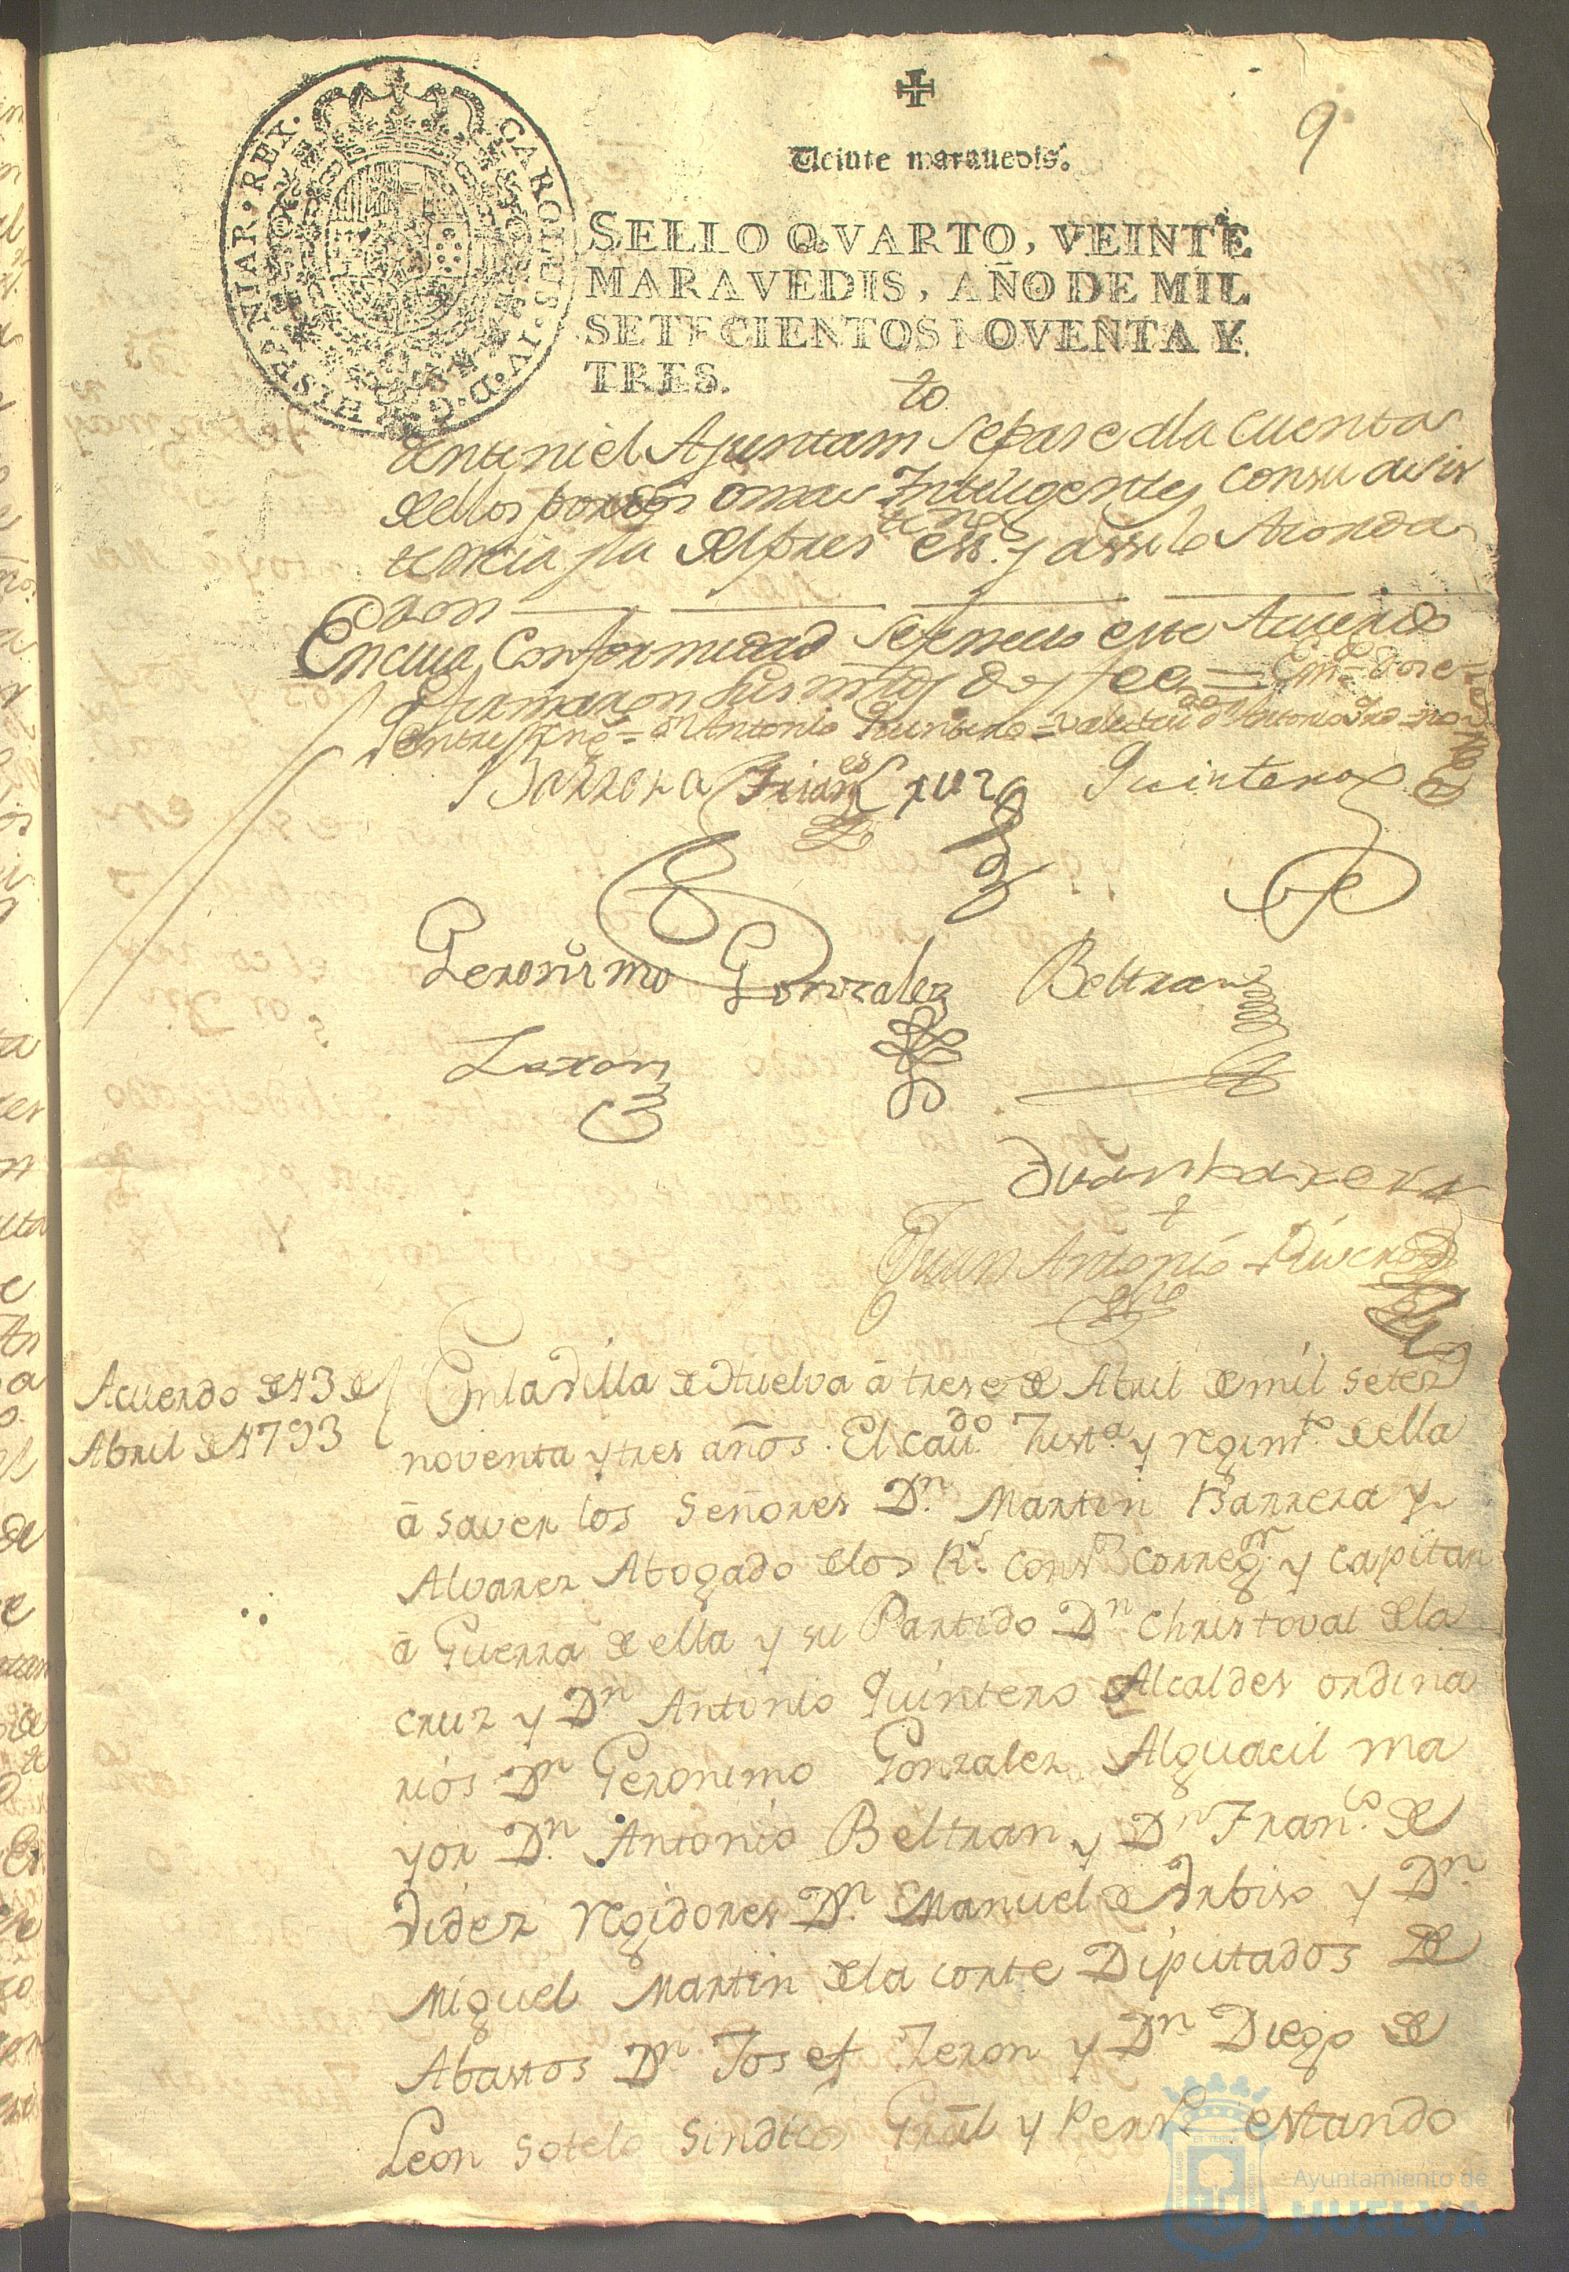 9
Veinte maravedis.
CAROLUS. IV. D. G. HISPANIAR. REX.
SELLO QVARTO, VEINTE
MARAVEDIS, AÑO DE MIL
SETECIENTOS NOVENTA Y
TRES.
Ajuntam.to se pase a la cuenta
dellos por dos o mas Inteligentes con su asis
tencia y la del pres.te ess.no y assi lo Acorda
ron
En cuia Conformidad se fenecio este Acuerdo
y firmaron sus mrds doy fee =
entre = Dn Antonio Quintero = vale
Barrera Cruz Quintero
Geronimo Gonzalez Beltran
Juan Antonio Rivero
Acuerdo de 13 de
Abril de 1793
En la Villa de Huelva â trese de Abril de mil setez.s
noventa y tres años. El cav.do Just.a y regim.to de ella
â saver los Señores Dn. Martin Barrera y
Alvarez Abogado de los R.s Cons.s correg.or y capitan
â Guerra de ella y su Partido Dn. Christoval de la
cruz y Dn Antonio Quintero Alcaldes ordina
rios Dn Geronimo Gonzalez Alguacil ma
yor Dn. Antonio Beltran y Dn Fran.co de
Videz regidores Dn. Manuel de Vrbiso y Dn.
Miguel Martin de la corte Diputados de
Abastos Dn Josef Jeron y Dn Diego de
Leon Sotelo Sindicos Gral y Pers.o estando
Ayuntamiento de
HUELVA